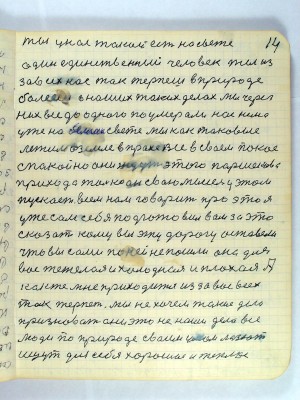 ты у нас такой есть на свете 14
один единственный человек ты из
за всех нас так терпеш в природе
болееш в наших таких делах мы через
них все до одного поумерали нас нема
уже на белам свете мы как таковые
лежим в земле в прахе все в своем покое
спокойно они ждут этого
прихода ты когда свою мысль у этом
пускаеш всем нам говориш про это я
уже сам себя подготовил вам за это
сказать кому вы эту дорогу оставили
что вы сами по ней не пошли она для
вас тяжелая и холодная и плохая А
как же мне приходится из за вас всех
так терпет. мы не хочем такое дело
признават они это не наши дела все
люди по природе своим
ищут для себя хорошое и теплое